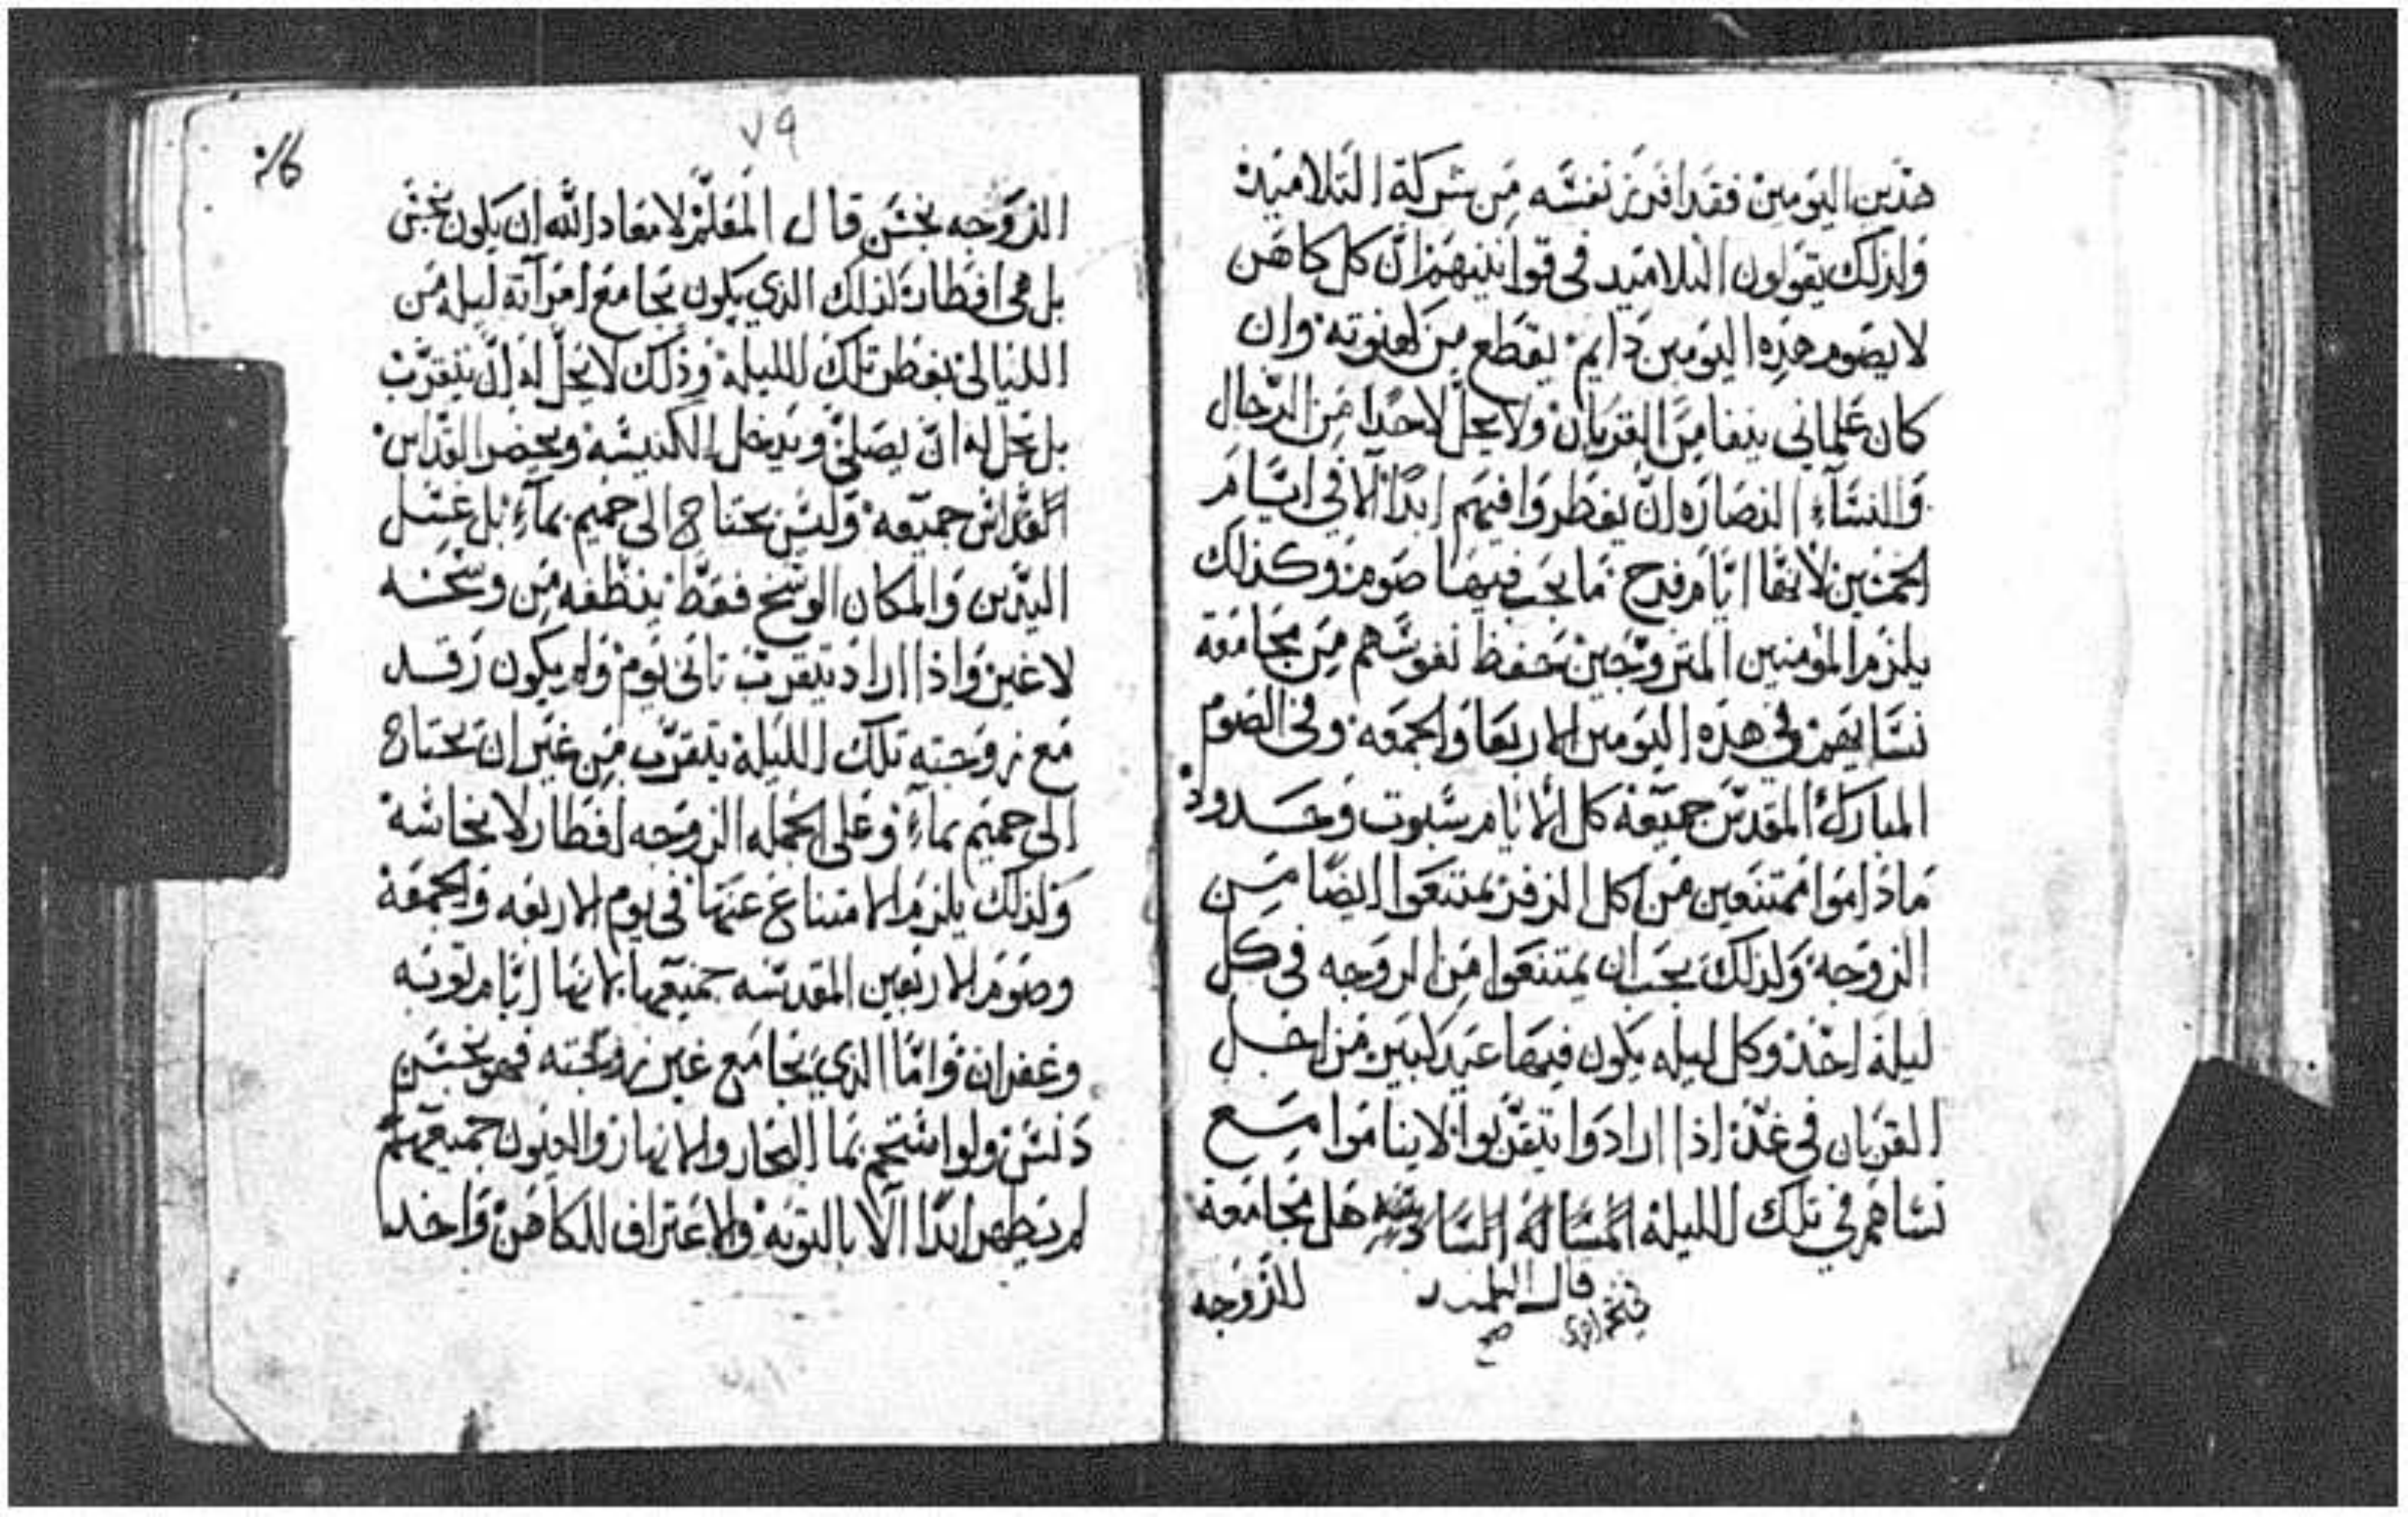 هذين اليومين فقد افرز نفسه من شركة التلاميذ
ولذلك يقولون التلاميد في قوانينهم ان كل كاهن
لا يصوم هذه اليومين دايم يقطع من كهنوته وان
كان علماني ينفا من القربان ولا يحل لاحدا من الرجال
والنسآء النصاره ان يفطروا فيهم ابدًا الا في ايام
الخمسين لانها ايام فرح ما يجب فيها صوم وكذلك
يلزم المومنين المتزوجين حفظ نفوسهم من مجامعة
نسايهم في هذه اليومين الاربعا والجمعه وفي الصوم
المبارك المقدس جميعه كل الايام سبوت وحدود
ماداموا ممتنعين من اكل الزفر يمتنعوا ايضًا من
الزوجه ولذلك يجب ان يمتنعوا من الزوجه في كل
ليلة احد وكل ليله يكون فيها عيد كبير من اجل
القربان في غد اذا ارادوا يتقربوا لا يناموا مع
نساهم في تلك الليلة المسالة السادسه هل مجامعة
قال التلميد
صح
للزوجه
٧٩
الزوجه نجس قال المعلم لا معاد الله ان يكون نجس
بل هي افطار لذلك الذي يكون يجامع امرآته ليله من
الليالي يفطر تلك الليلة وذلك لا يحل له ان يتقرب
بل يحل له ان يصلي ويدخل الكنيسه ويحضر القداس
القداس جميعه وليس يحتاج الى حميم بمآء بل غسل
اليدين والمكان الوسخ فقط ينظفه من وسخه
لا غير واذا اراد يتقرب تاني يوم ولم يكون رقد
مع زوجته تلك الليلة يتقرب من غير ان يحتاج
الى حميم بمآء وعلى الجمله الزوجه افطار لا نجاسه
ولذلك يلزم الامتناع عنها في يوم الاربعه والجمعة
وصوم الاربعين المقدسه جميعها لانها ايام توبه
وغفران واما الذي يجامع غير زوجته فهو نجس
دنس ولو استحم بما البحار والانهار والعيون جميعهم
لم يطهر ابدًا الا بالتوبه والاعتراف للكاهن واخد